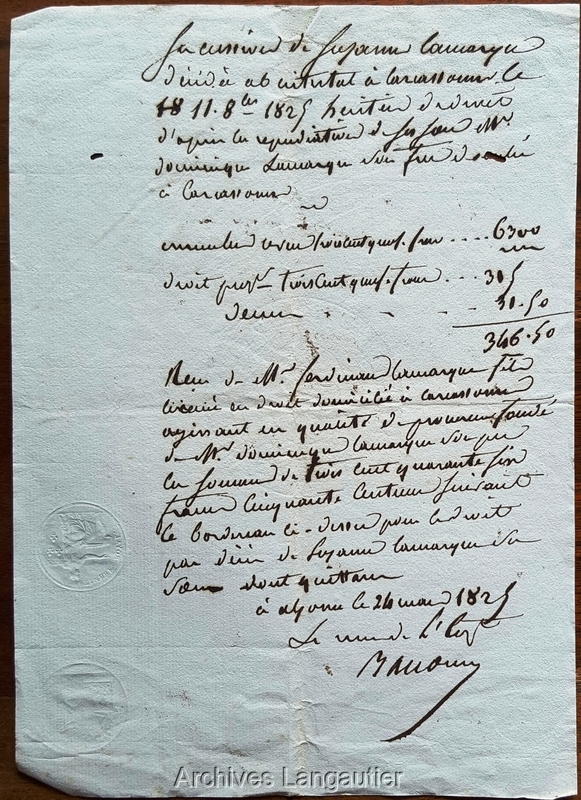 Succession de Suzanne Lamarque
décédée ab intestat à Carcassonne le
11. 8bre 1825 héritier de droit
d'après la répudiation de Mr.
dominique Lamarque son frère
à Carcassonne
6300
droit trois cent quinze francs 315
décime 31.50
346.50
Reçu de Mr. ferdinand Lamarque fils
licencié en droit domicilié à Carcassonne
agissant en qualité de procureur fondé
de Mr. dominique Lamarque son père
la somme de trois cent quarante six
francs cinquante centimes suivant
le bordereau ci-dessus pour le droit
par décès de Suzanne Lamarque sa
sœur dont quittance
à alzonne le 24 1825
Le de l'
Archives Langautier